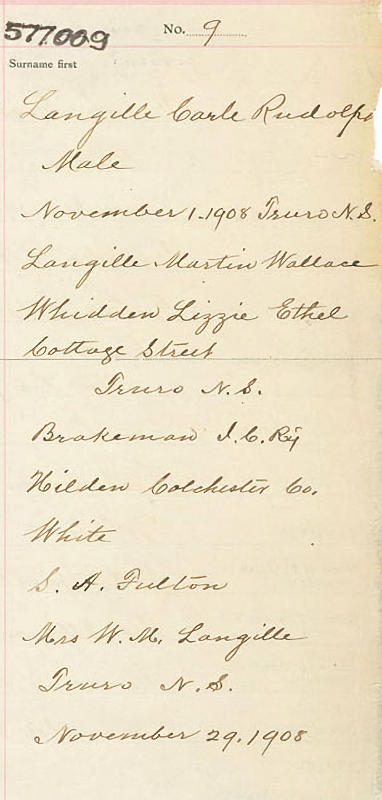 577009
No. 9
Surname first
Langille Carle Rudolph
Male
November 1-1908 Truro N.S.
Langille Martin Wallace
Whidden Lizzie Ethel
Cottage Street
Truro N.S.
Brakeman I.C.Ry
Hilden Colchester Co.
White
S. A. Fulton
Mrs W. M. Langille
Truro N.S.
November 29.1908